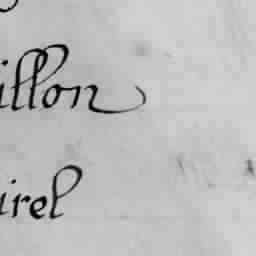 illon
irel